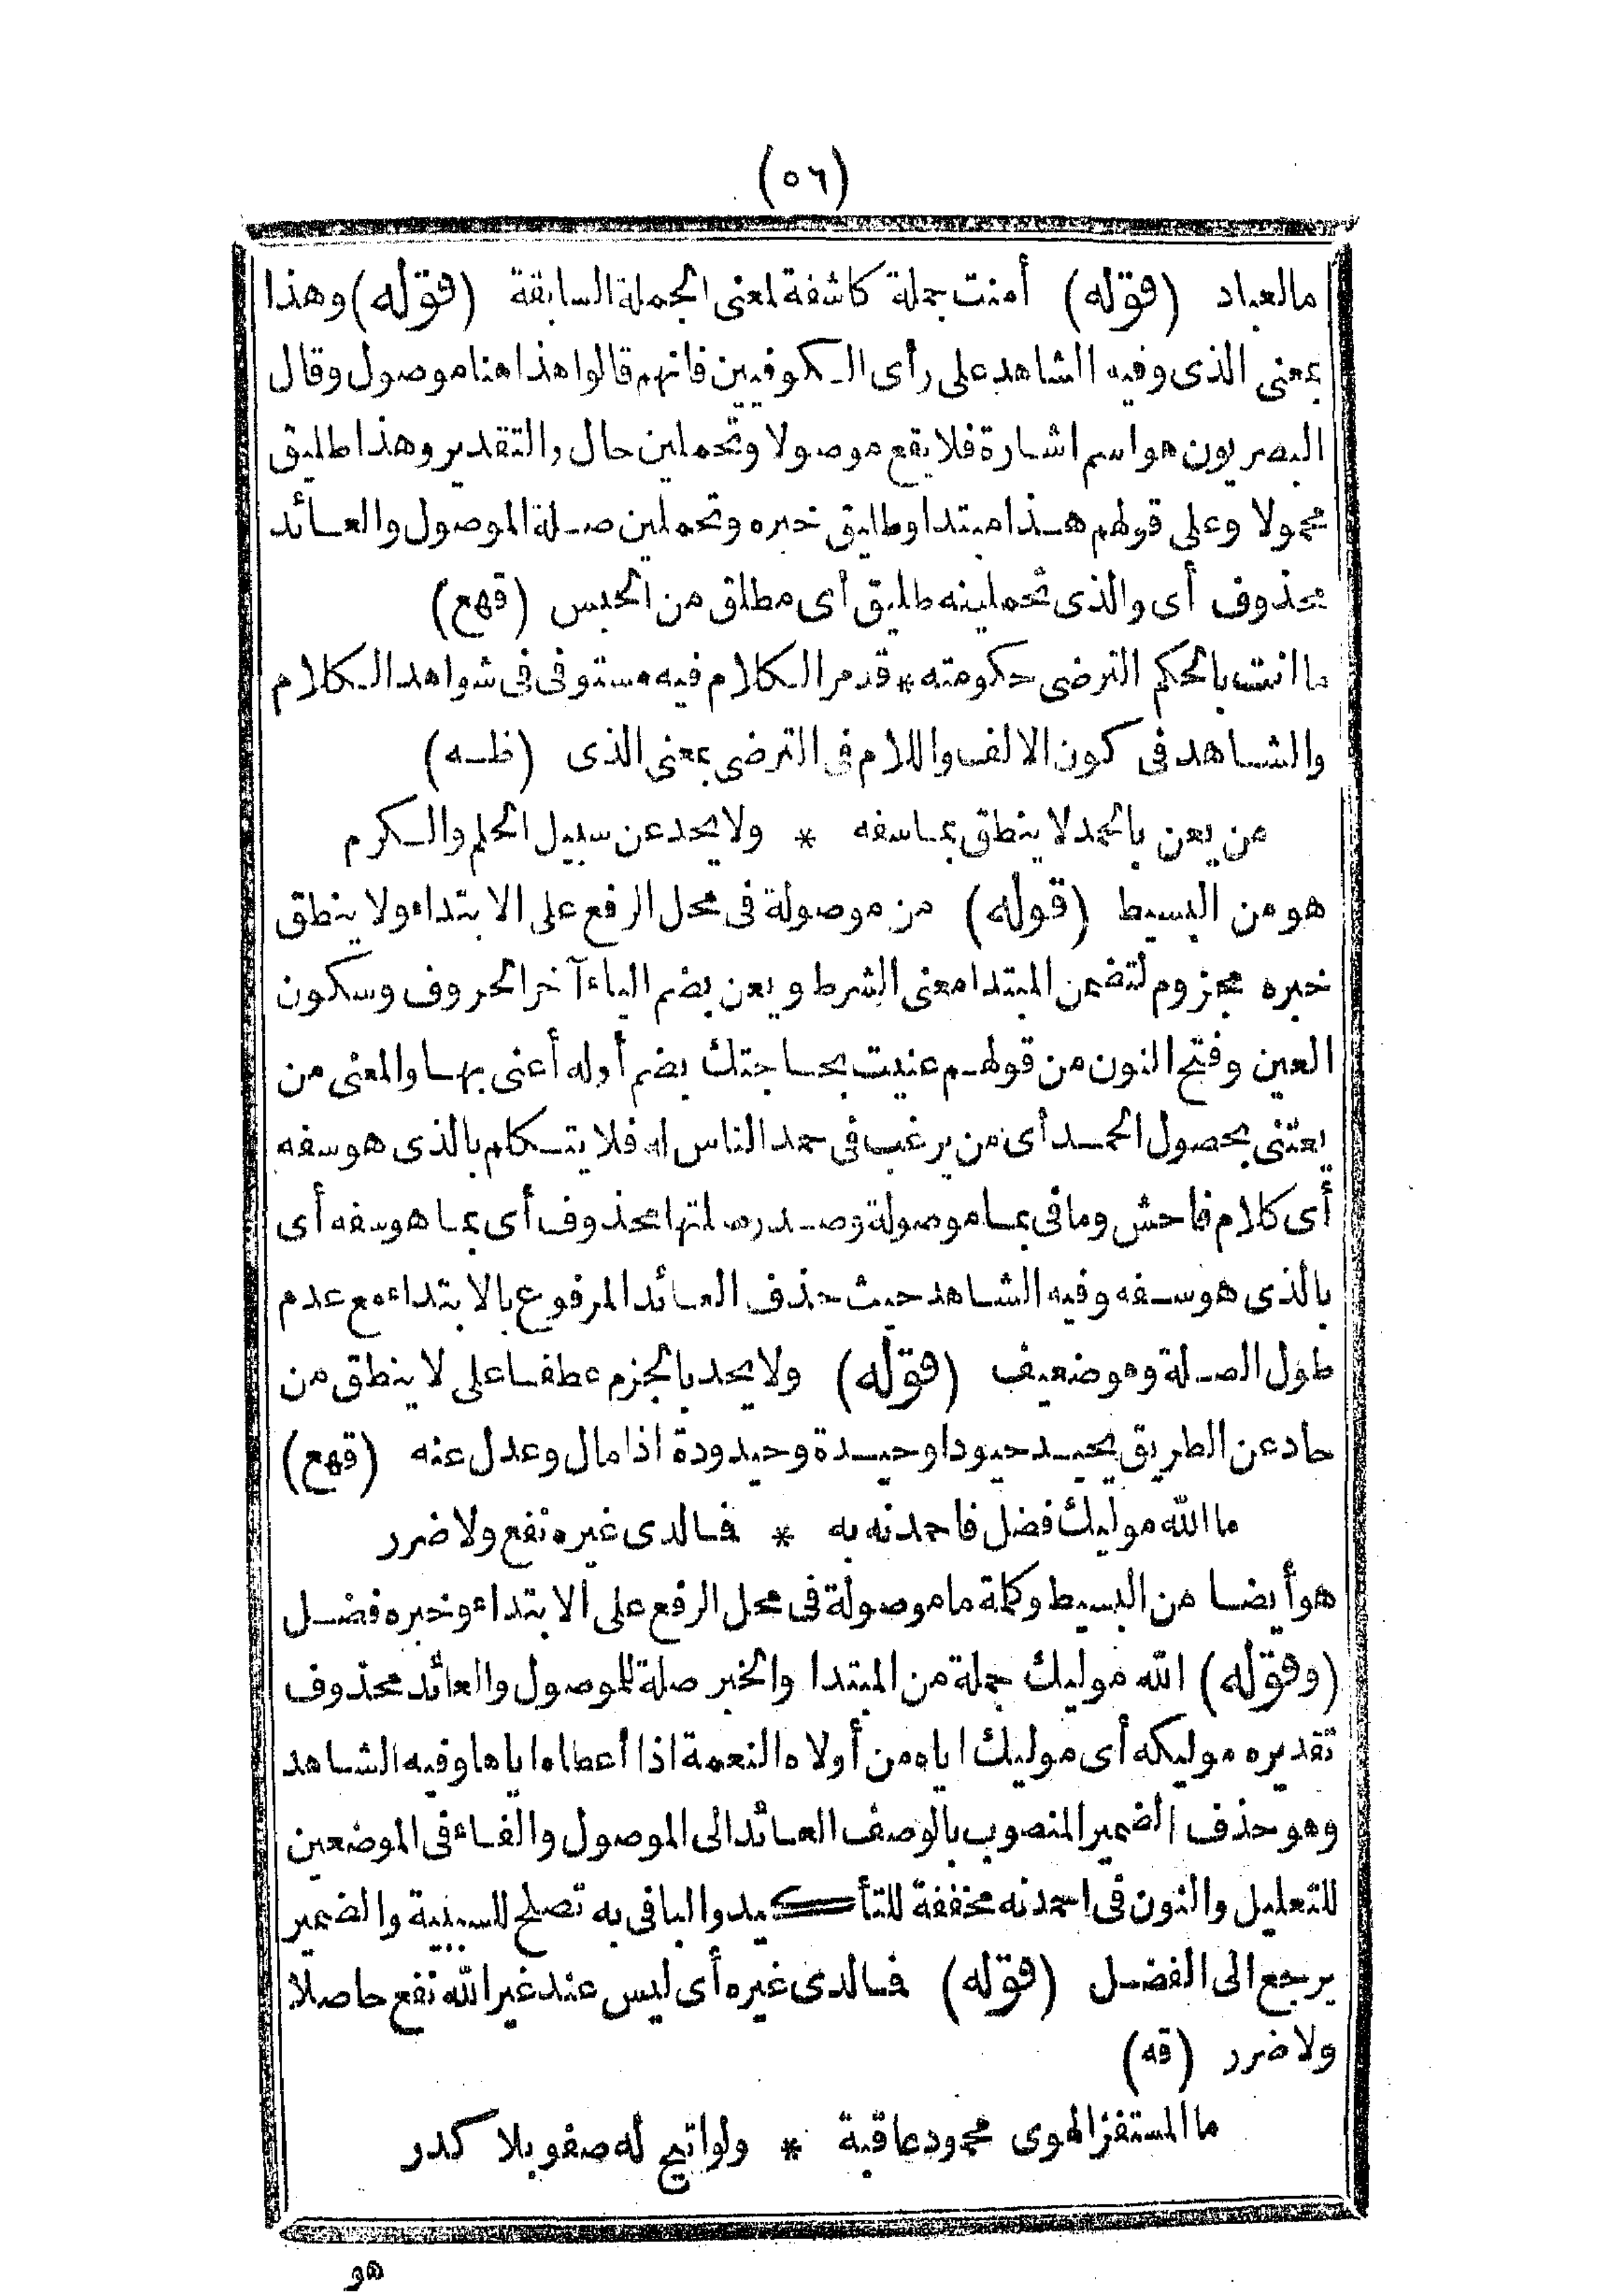 (٥٦)
مالعباد (قوله) أمنت جملة كاشفة لمعنى الجملة السابقة (قوله) وهذا
بمعنى الذى وفيه الشاهد على رأى الكوفيين فانهم قالوا هذا هنا موصول وقال
البصريون هو اسم اشارة فلا يقع موصولا وتحملين حال والتقدير وهذا طليق
محمولا وعلى قولهم هذا مبتدا وطليق خبره وتحملين صلة الموصول والعائد
محذوف أى والذى تحملينه طليق أى مطلق من الحبس (قهع)
ما انت بالحكم الترضى حكومته * قد مر الكلام فيه مستوفى فى شواهد الكلام
والشاهد فى كون الالف واللام فى الترضى بمعنى الذى (ظسه)
من يعن بالحمد لا ينطق بما سفه * ولا يحد عن سبيل الحلم والكرم
هو من البسيط (قوله) من موصولة فى محل الرفع على الابتداء ولا ينطق
خبره مجزوم لتضمن المبتدا معنى الشرط ويعن بضم الياء آخر الحروف وسكون
العين وفتح النون من قولهم عنيت بحاجتك بضم أوله أعنى بها والمعنى من
يعتنى بحصول الحمد أى من يرغب فى حمد الناس له فلا يتكلم بالذى هو سفه
أى كلام فاحش وما فى بما موصولة وصدر صلتها محذوف أى بما هو سفه أى
بالذى هو سفه وفيه الشاهد حيث حذف العائد المرفوع بالابتداء مع عدم
طول الصلة وهو ضعيف (قوله) ولا يحد بالجزم عطفا على لا ينطق من
حاد عن الطريق يحيد حيودا وحيدة وحيدودة اذا مال وعدل عنه (قهع)
ما الله موليك فضل فاحمدنه به * فما لدى غيره نفع ولا ضرر
هو أيضا من البسيط وكلمة ما موصولة فى محل الرفع على الابتداء وخبره فضل
(وقوله) الله موليك جملة من المبتدا والخبر صلة للموصول والعائد محذوف
تقديره موليكه أى موليك اياه من أولاه النعمة اذا أعطاه اياها وفيه الشاهد
وهو حذف الضمير المنصوب بالوصف العائد الى الموصول والفاء فى الموضعين
للتعليل والنون فى احمدنه مخففة للتأكيد والباء فى به تصلح للسببية والضمير
يرجع الى الفضل (قوله) فما لدى غيره أى ليس عند غير الله نفع حاصلا
ولا ضرر (قه)
ما المستفز الهوى محمود عاقبة * ولو اتيح له صفو بلا كدر
هو